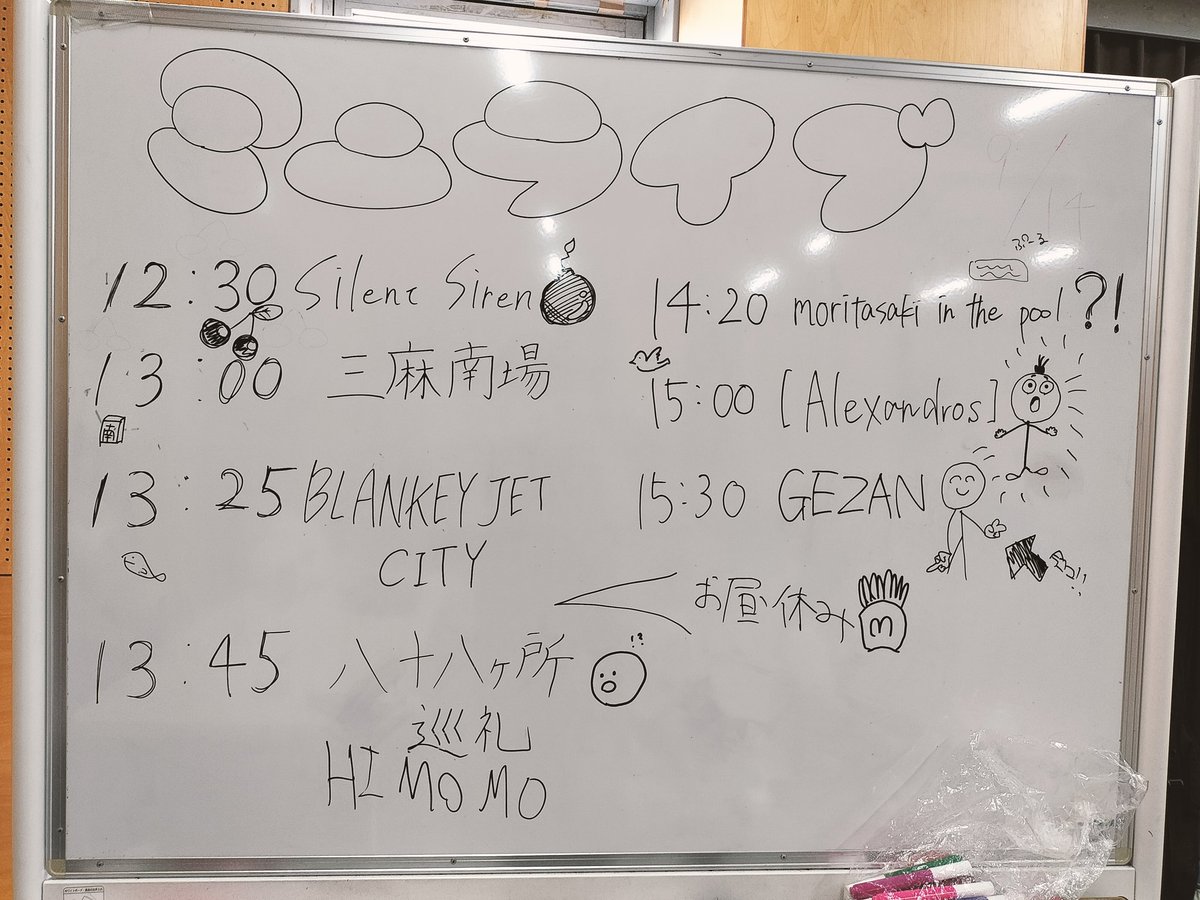 ミニライブ
9/14
12:30 Silent Siren
13:00 三麻南場
南
13:25 BLANKEY JET
CITY
13:45 八十八ヶ所
!?
巡礼
HIMOMO
ぷーる
14:20 moritasaki in the pool?!
15:00 [Alexandros]
15:30 GEZAN
お昼休み
m